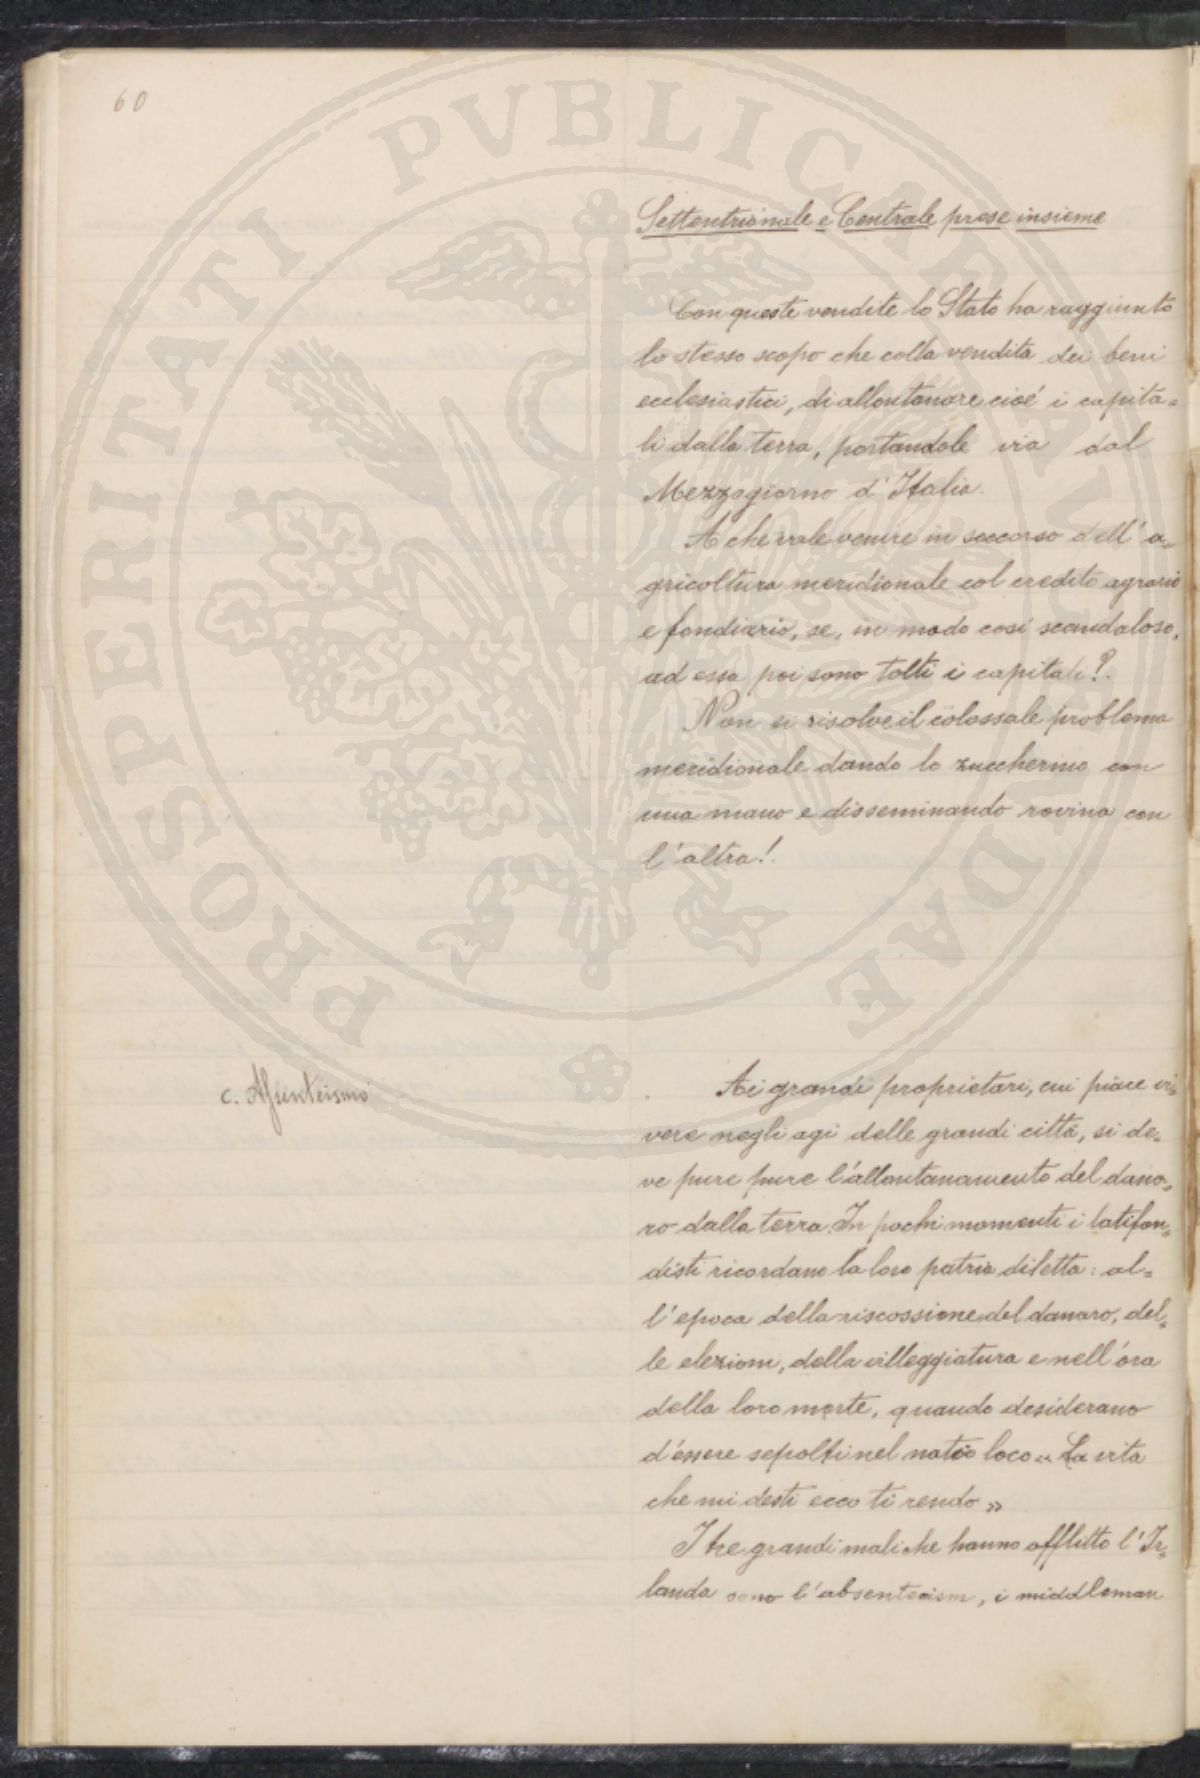 60
PROSPERITATI PVBLICAE AVGENDAE
Settentrionale e Centrale prese insieme
Con queste vendite lo Stato ha raggiunto
lo stesso scopo che colla vendita dei beni
ecclesiastici, di allontanare cioè i capita=
li dalla terra, portandole via dal
Mezzogiorno d'Italia.
A che vale venire in soccorso dell'a=
gricoltura meridionale col credito agrario
e fondiario, se, in modo così scandaloso,
ad essa poi sono tolti i capitali?.
Non si risolve il colossale problema
meridionale dando lo zuccherino con
una mano e disseminando rovina con
l'altra!.
c. Assenteismo
Ai grandi proprietari, cui piace vi=
vere negli agi delle grandi città, si de=
ve pure pure l'allontanamento del dana=
ro dalla terra. In pochi momenti i latifon=
disti ricordano la loro patria diletta: al=
l'epoca della riscossione del danaro, del=
le elezioni, della villeggiatura e nell'ora
della loro morte, quando desiderano
d'essere sepolti nel natio loco « La vita
che mi desti ecco ti rendo »
I tre grandi mali che hanno afflitto l'Ir=
landa sono l'absenteeism, i middleman